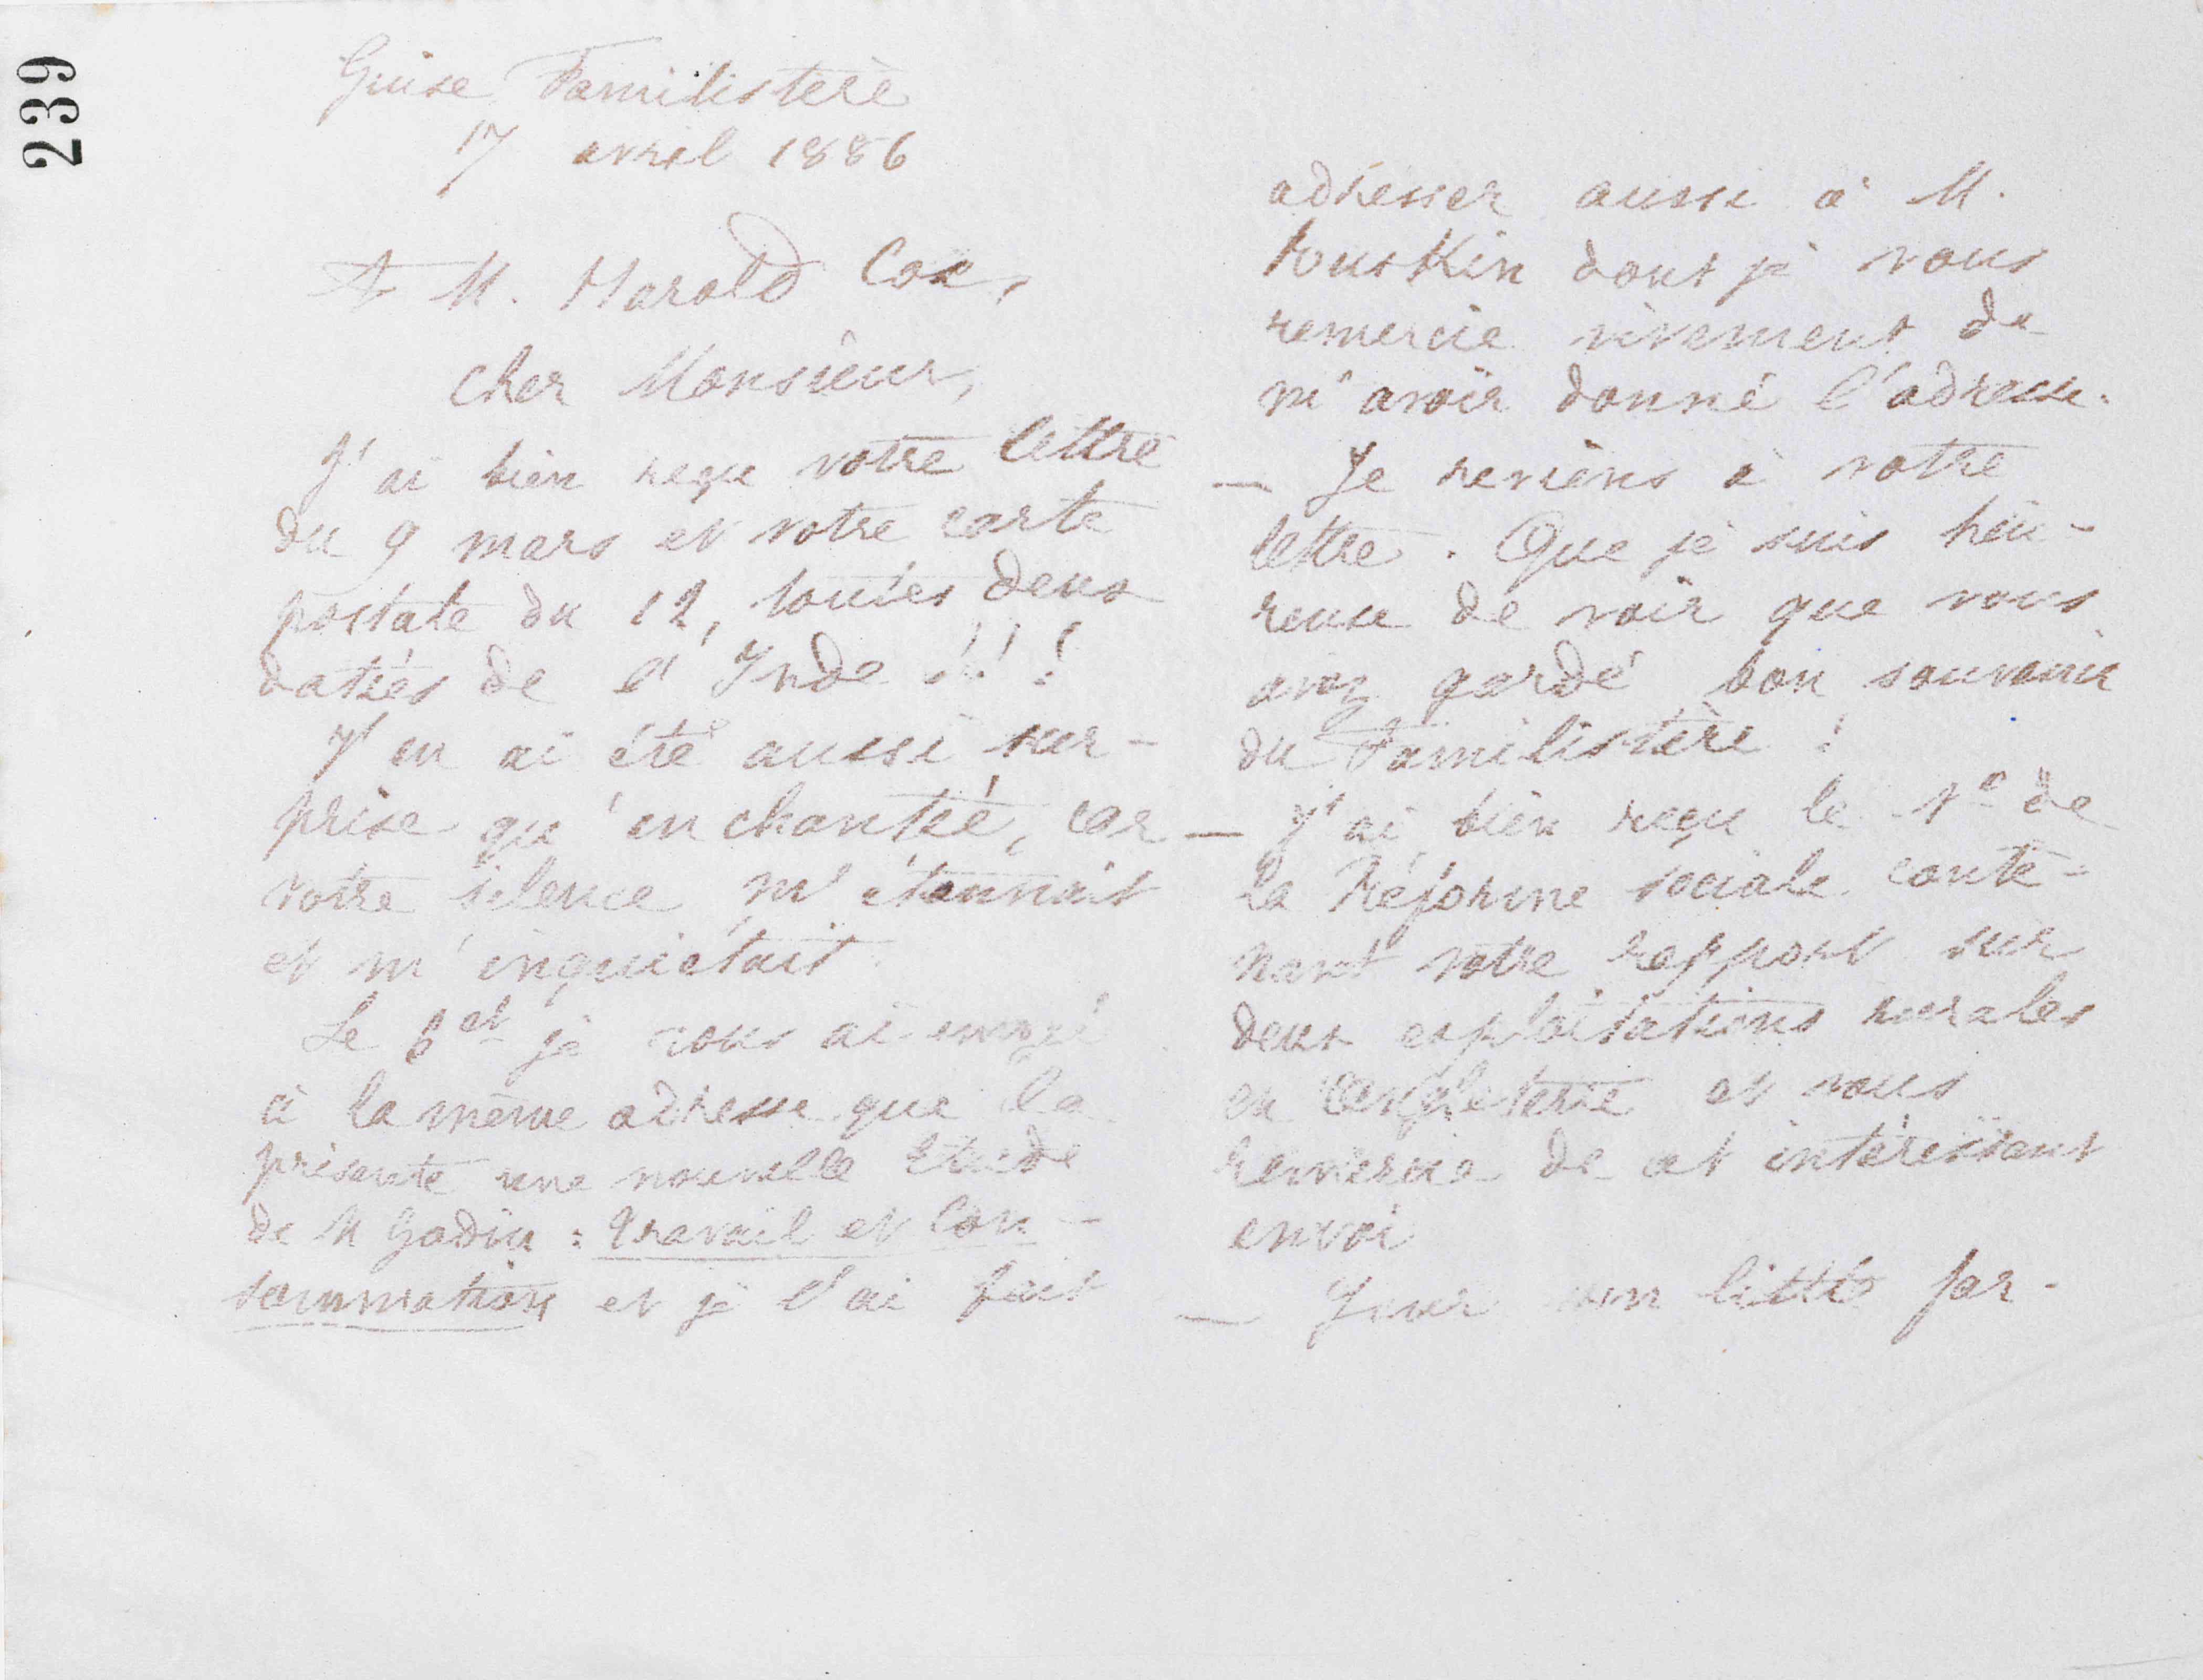 239
Guise Familistère
17 avril 1886
A M. Harold Cox,
Cher Monsieur,
J'ai bien reçu votre lettre
du 9 mars et votre carte
postale du 12, toutes deux
datées de l'Inde !!!
J'en ai été aussi sur-
prise qu'enchantée, car
votre silence m'étonnait
et m'inquiétait.
Le 6 ct je vous ai envoyé
à la même adresse que la
présente une nouvelle Etude
de M Godin : Travail et Con-
sommation et je l'ai fait
adresser aussi à M.
Rouskin dont je vous
remercie vivement de
m'avoir donné l'adresse.
— Je reviens à votre
lettre. Que je suis heu-
reuse de voir que vous
avez gardé bon souvenir
du Familistère !
— J'ai bien reçu le No de
la Réforme sociale conte-
nant votre rapport sur
deux exploitations rurales
en Angleterre et vous
remercie de cet intéressant
envoi
— little far-